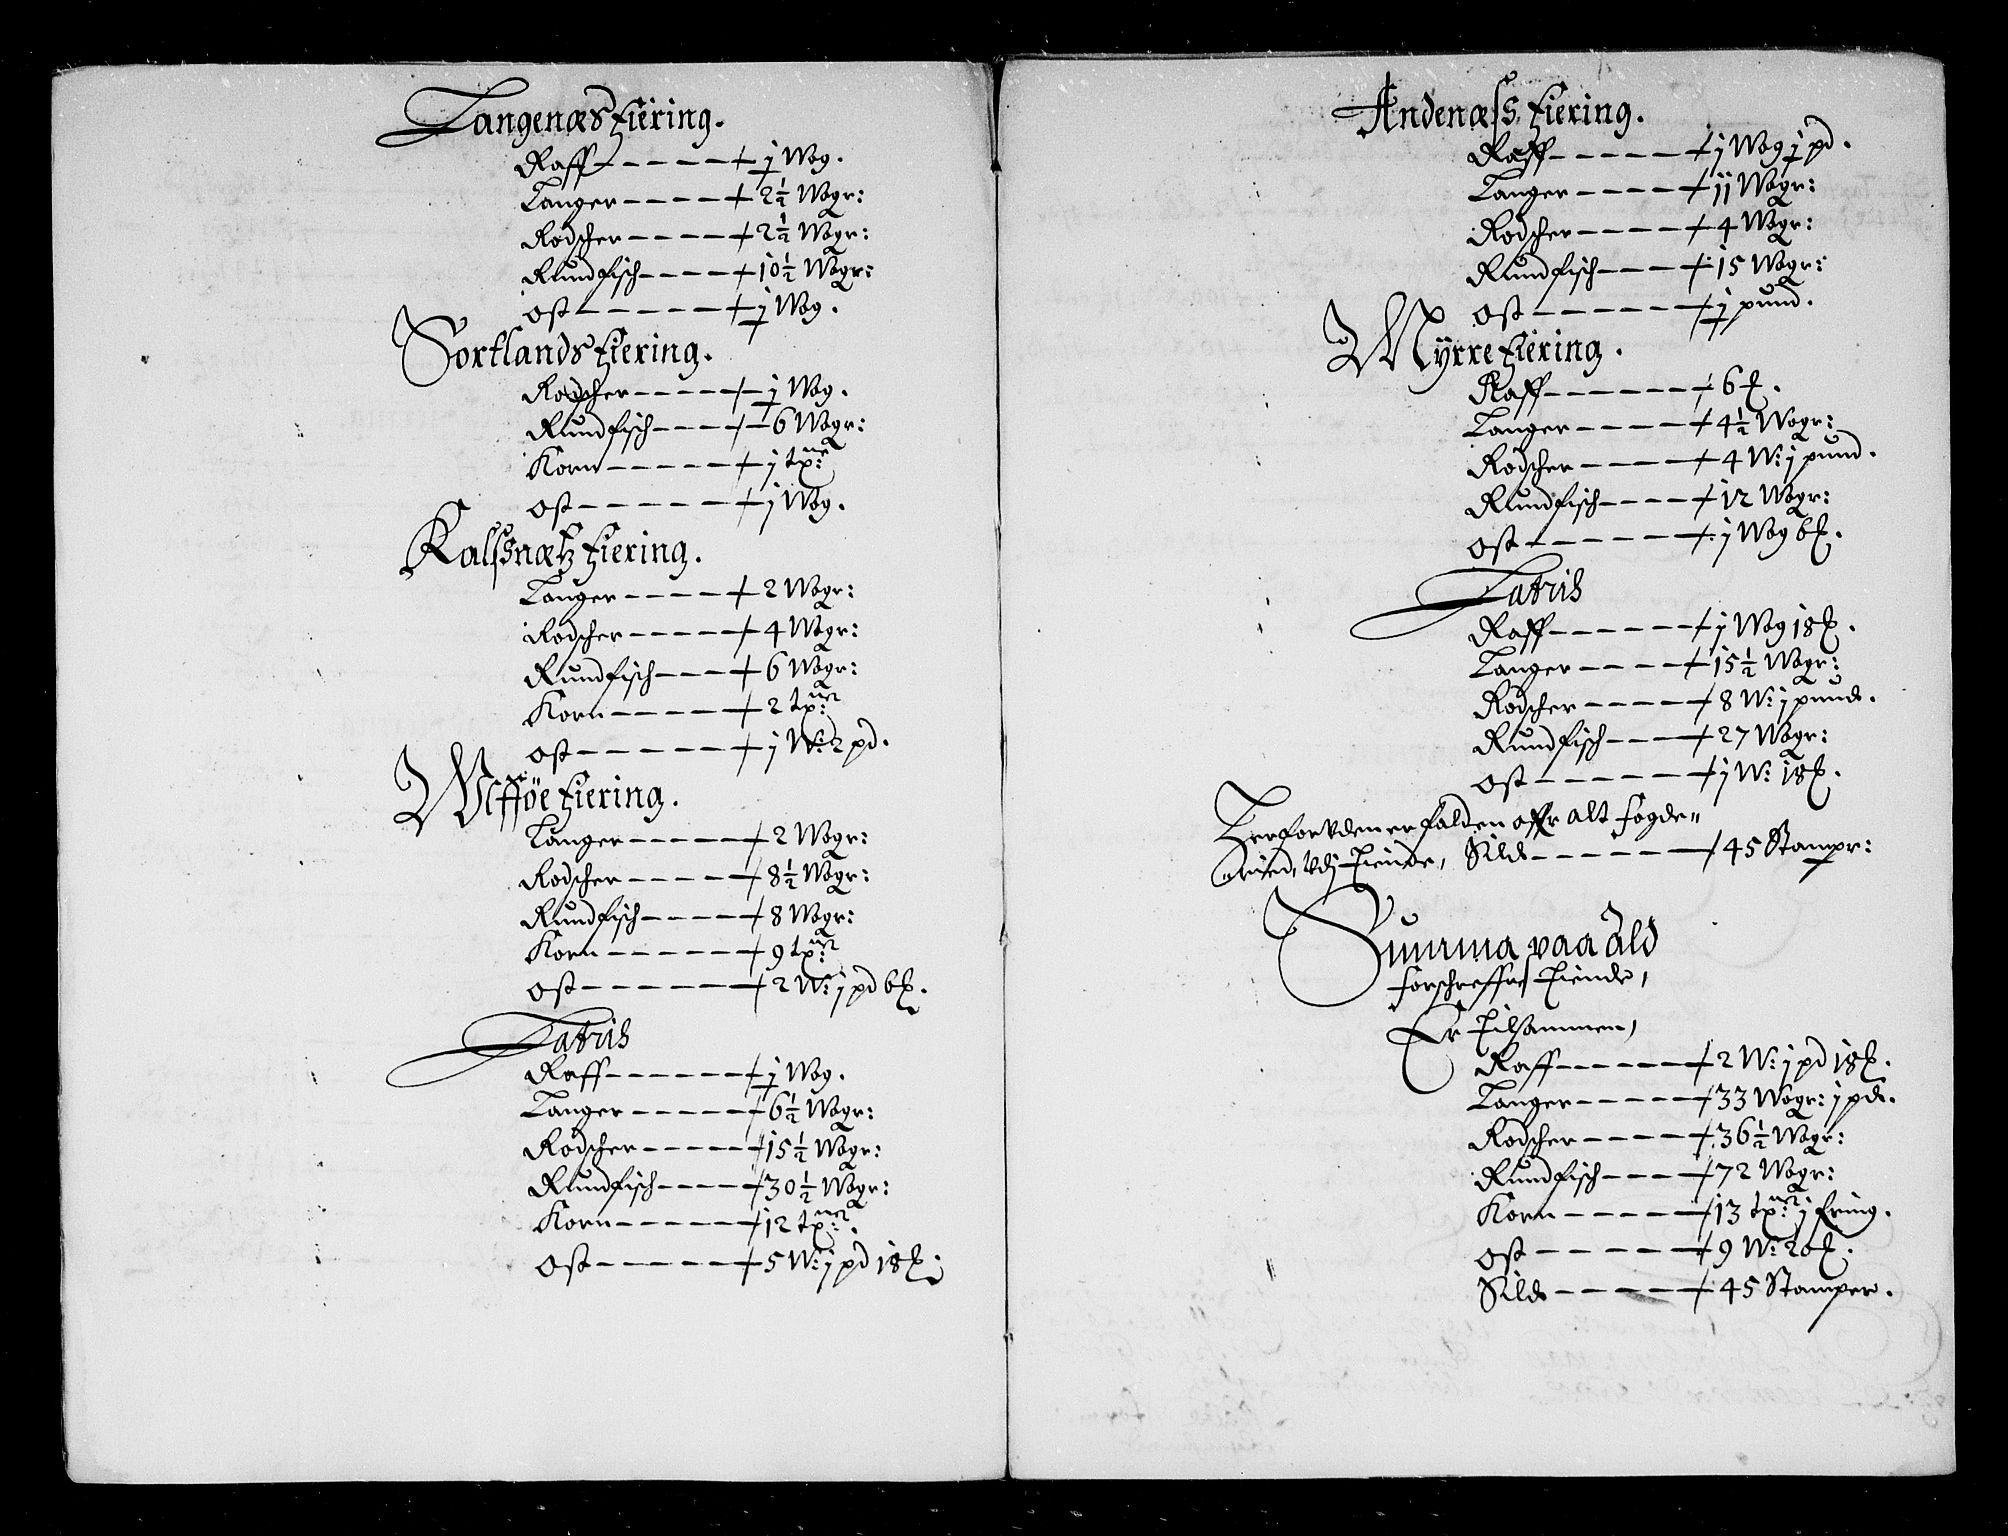 Langenæs fiering.
Raff - - - - - - j Wog.
Langer - - - - - 2½ Wogr:
Rodscher - - - - - 2½ Wogr:
Rundfisch - - - - 10½ Wogr:
ost - - - - - - - j Wog.
Sortlands fiering.
Rodscher - - - - - j Wog.
Rundfisch - - - - 6 Wogr:
Korn - - - - - - j tøne
ost - - - - - - - j Wog.
Kalsnætz fiering.
Langer - - - - - 2 Wogr:
Rodscher - - - - - 4 Wogr:
Rundfisch - - - - 6 Wogr:
Korn - - - - - - 2 tøner
ost - - - - - - - j W: 2 pd.
Ulfföe fiering.
Langer - - - - - 2 Wogr:
Rodscher - - - - - 8½ Wogr:
Rundfisch - - - - 8 Wogr:
Korn - - - - - - 9 tøner
ost - - - - - - - 2 W: j pd 6 ℔.
Latris
Raff - - - - - - j Wog.
Langer - - - - - 6½ Wogr:
Rodscher - - - - - 15½ Wogr:
Rundfisch - - - - 30½ Wogr:
Korn - - - - - - 12 tøner.
ost - - - - - - - 5 W: j pd 18 ℔.
Andenæss fiering.
Raff - - - - - - j Wog j pd.
Langer - - - - - jj Wogr:
Rodscher - - - - - 4 Wogr:
Rundfisch - - - - 15 Wogr:
ost - - - - - - - j pund.
Myrre fiering.
Raff - - - - - - 6 ℔.
Langer - - - - - 4½ Wogr:
Rodscher - - - - - 4 W: j pund.
Rundfisch - - - - 12 Wogr:
ost - - - - - - - j Wog 6 ℔.
Latris
Raff - - - - - - j Wog 18 ℔.
Langer - - - - - 15½ Wogr:
Rodscher - - - - - 8 W: j pund.
Rundfisch - - - - 27 Wogr:
ost - - - - - - - j W: 18 ℔.
Herforuden er falden offr alt fogde=
=ried, udj Tiende, Sild - - - - - 45 Stampr:
Summa paa ald
forschreffne Tiende,
Er Tilsammen,
Raff - - - - - - 2 W: j pd 18 ℔.
Langer - - - - - 33 Wogr: j pd.
Rodscher - - - - - 36½ Wogr:
Rundfisch - - - - 72 Wogr:
Korn - - - - - - 13 tøner j fring.
ost - - - - - - - 9 W: 20 ℔.
Sild - - - - - - 45 Stamper.